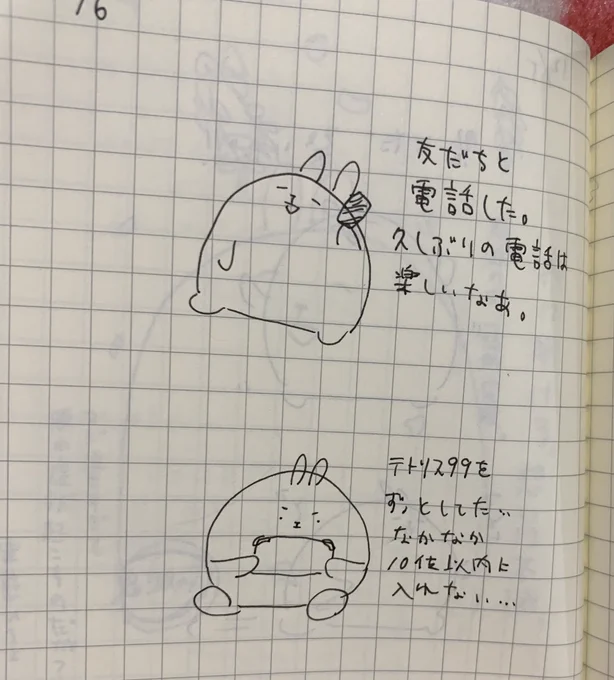 16
友だちと
電話した。
久しぶりの電話は
楽しいなぁ。
テトリス99を
ずっとしてた...
なかなか
10位以内に
入れない...